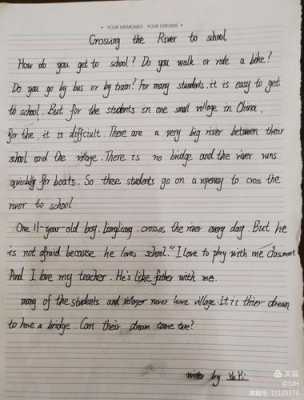 YOUR MEMORIES YOUR DREAMS
Crossing the River to school
How do you get to school? Do you walk or ride a bike?
Do you go by bus or by train? For many students. it is easy to get
to school. But for the students in one small village in China.
for the it is difficult. There are a very big river between their
school and the village. There is no bridge and the river runs
quickly for boats. So these students go on a ropeway to cross the
river to school
One 11-year-old boy. Liangliang. crosses the river every day. But he
is not afraid because he loves school. "I love to play with my classmates
And I love my teacher. He's like father with me.
many of the students and villager never leave village. It is their dream
to have a bridge. Can their dream come true?
by